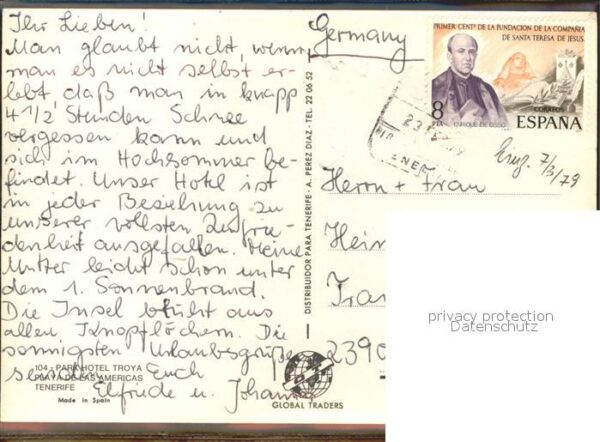 Ihr Lieben!
Man glaubt nicht, wenn
man es nicht selbst er-
lebt, daß man in knapp
4 1/2 Stunden Schnee
vergessen kann und
sich im Hochsommer be-
findet. Unser Hotel ist
in jeder Beziehung zu
unserer vollsten Zufrie-
denheit ausgefallen. Meine
Mutter leidet schon unter
dem 1. Sonnenbrand.
Die Insel blüht aus
allen Knopflöchern. Die
sonnigsten Urlaubsgrüße
senden Euch
Elfriede u. Johann
104 - PARK HOTEL TROYA
PLAYA DE LAS AMERICAS
TENERIFE
Made in Spain
DISTRIBUIDOR PARA TENERIFE - A. PEREZ DIAZ - TEL. 22 06 52
GLOBAL TRADERS
Germany
PRIMER CENTº DE LA FUNDACION DE LA COMPAÑIA
DE SANTA TERESA DE JESUS
8
PTA
ENRIQUE DE OSSO
CORREOS
ESPAÑA
23
79
7/3/79
Herrn + Frau
Hein
2390
privacy protection
Datenschutz